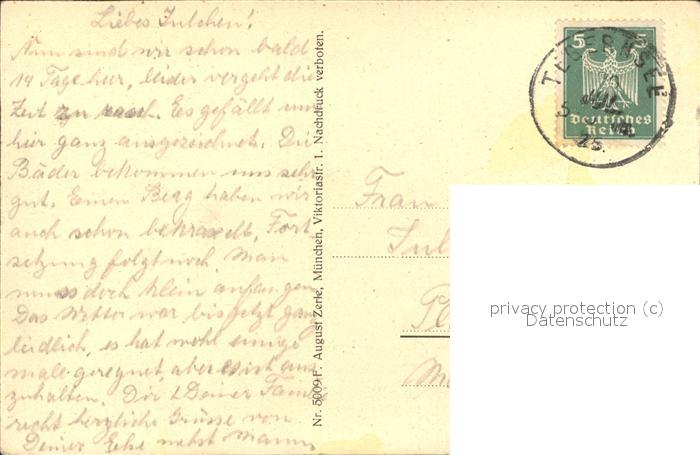 Liebes Julchen!
Nun sind wir schon bald
14 Tage hier, leider vergeht die
Zeit zu rasch. Es gefällt uns
hier ganz ausgezeichnet. Die
Bäder bekommen uns sehr
gut. Einen Berg haben wir
auch schon bekraxelt, Fort-
setzung folgt noch. Man
muss doch klein anfangen.
Das Wetter war bis jetzt ganz
leidlich, es hat wohl einige
male geregnet, aber es ist aus-
zuhalten. Dir & Deiner Familie
recht herzliche Grüsse von
Deiner nebst Mann
Nr. 5009 F. August Zerle, München, Viktoriastr. 1. Nachdruck verboten.
5 5
Deutsches
Reich
TEGERNSEE
25.
Frau
Jul
privacy protection (c)
Datenschutz